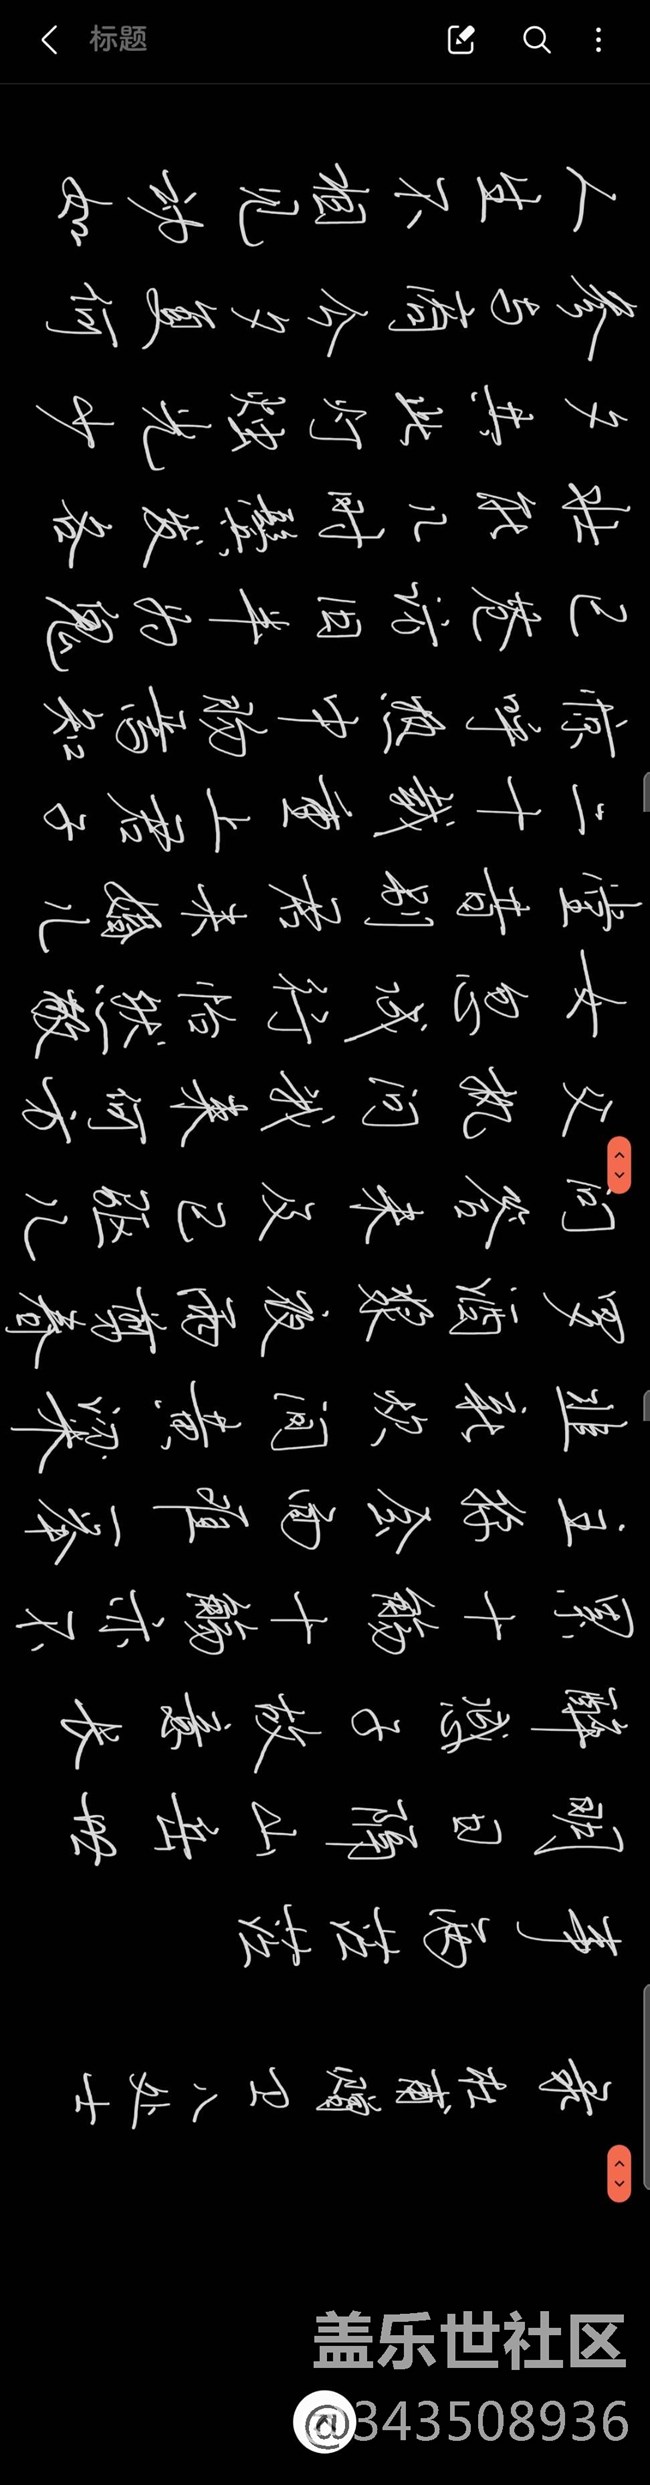 标题
人生不相见动如
参与商今夕复何
夕共此灯烛光少
壮能几时鬓发各
已苍访旧半为鬼
惊呼热中肠焉知
二十载重上君子
堂昔别君未婚儿
女忽成行怡然敬
父执问我来何方
问答未及已驱儿
罗酒浆夜雨剪春
韭新炊间黄粱
主称会面难一举
累十觞十觞亦不
醉感子故意长
明日隔山岳世
事两茫茫
录杜甫赠卫八处士
盖乐世社区
@343508936